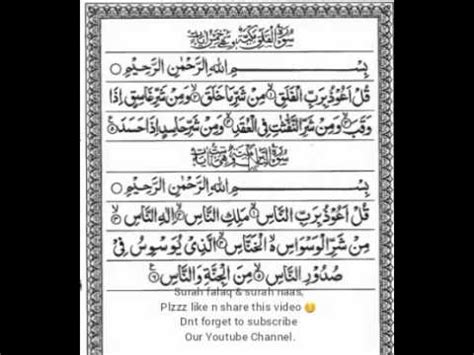 سُوْرَةُ الْفَلَقِ مَكِّيَّةٌ وَهِيَ خَمْسُ اٰيَاتٍ
بِسْمِ اللهِ الرَّحْمٰنِ الرَّحِيْمِ
قُلْ اَعُوْذُ بِرَبِّ الْفَلَقِ ۱ مِنْ شَرِّ مَا خَلَقَ ۲ وَمِنْ شَرِّ غَاسِقٍ اِذَا
وَقَبَ ۳ وَمِنْ شَرِّ النَّفّٰثٰتِ فِى الْعُقَدِ ۴ وَمِنْ شَرِّ حَاسِدٍ اِذَا حَسَدَ ۵
سُوْرَةُ النَّاسِ
بِسْمِ اللهِ الرَّحْمٰنِ الرَّحِيْمِ
قُلْ اَعُوْذُ بِرَبِّ النَّاسِ ۱ مَلِكِ النَّاسِ ۲ اِلٰهِ النَّاسِ ۳
مِنْ شَرِّ الْوَسْوَاسِ ەۙ الْخَنَّاسِ ۴ الَّذِىْ يُوَسْوِسُ فِىْ
صُدُوْرِ النَّاسِ ۵ مِنَ الْجِنَّةِ وَالنَّاسِ ۶
Surah falaq & surah naas,
Plzzz like n share this video 😊
Dnt forget to subscribe
Our Youtube Channel.